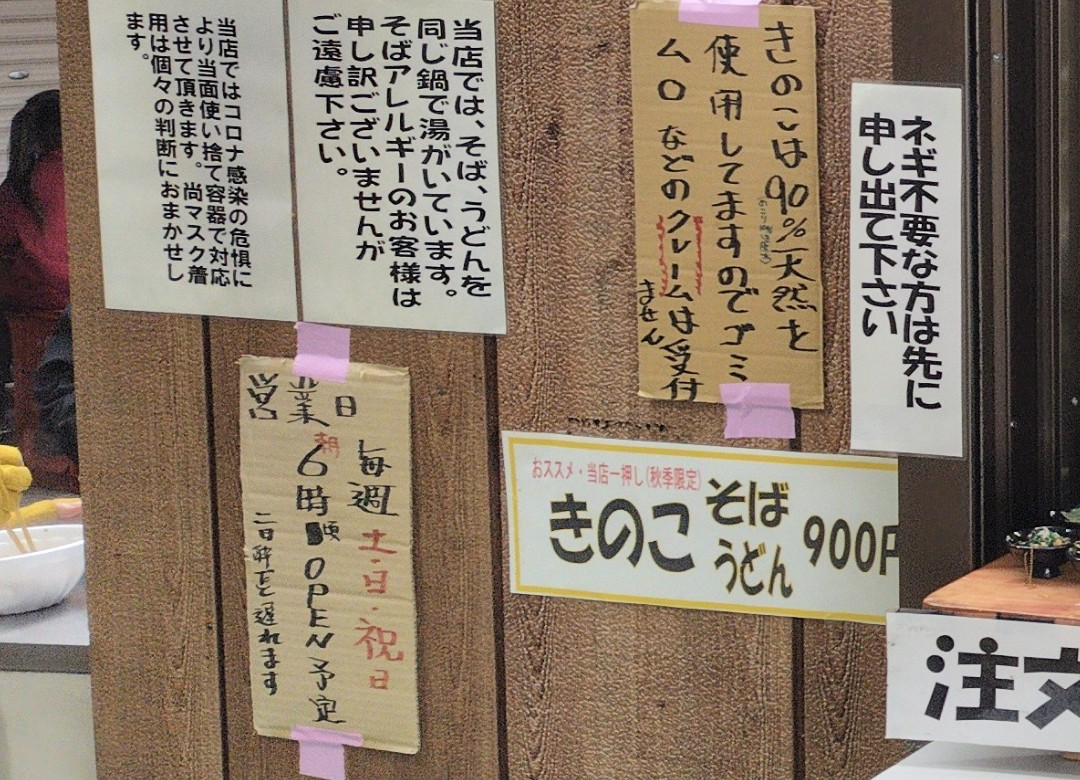 当店ではコロナ感染の危惧に
より当面使い捨て容器で対応
させて頂きます。尚マスク着
用は個々の判断におまかせし
ます。
当店では、そば、うどんを
同じ鍋で湯がいています。
そばアレルギーのお客様は
申し訳ございませんが
ご遠慮下さい。
きのこは90%天然を
使用してますのでゴミ
ムロなどのクレームは受付
ません
ネギ不要な方は先に
申し出て下さい
営業日
毎週土・日・祝日
朝6時頃OPEN予定
おススメ・当店一押し(秋季限定)
きのこ
そば
うどん
900円
注文